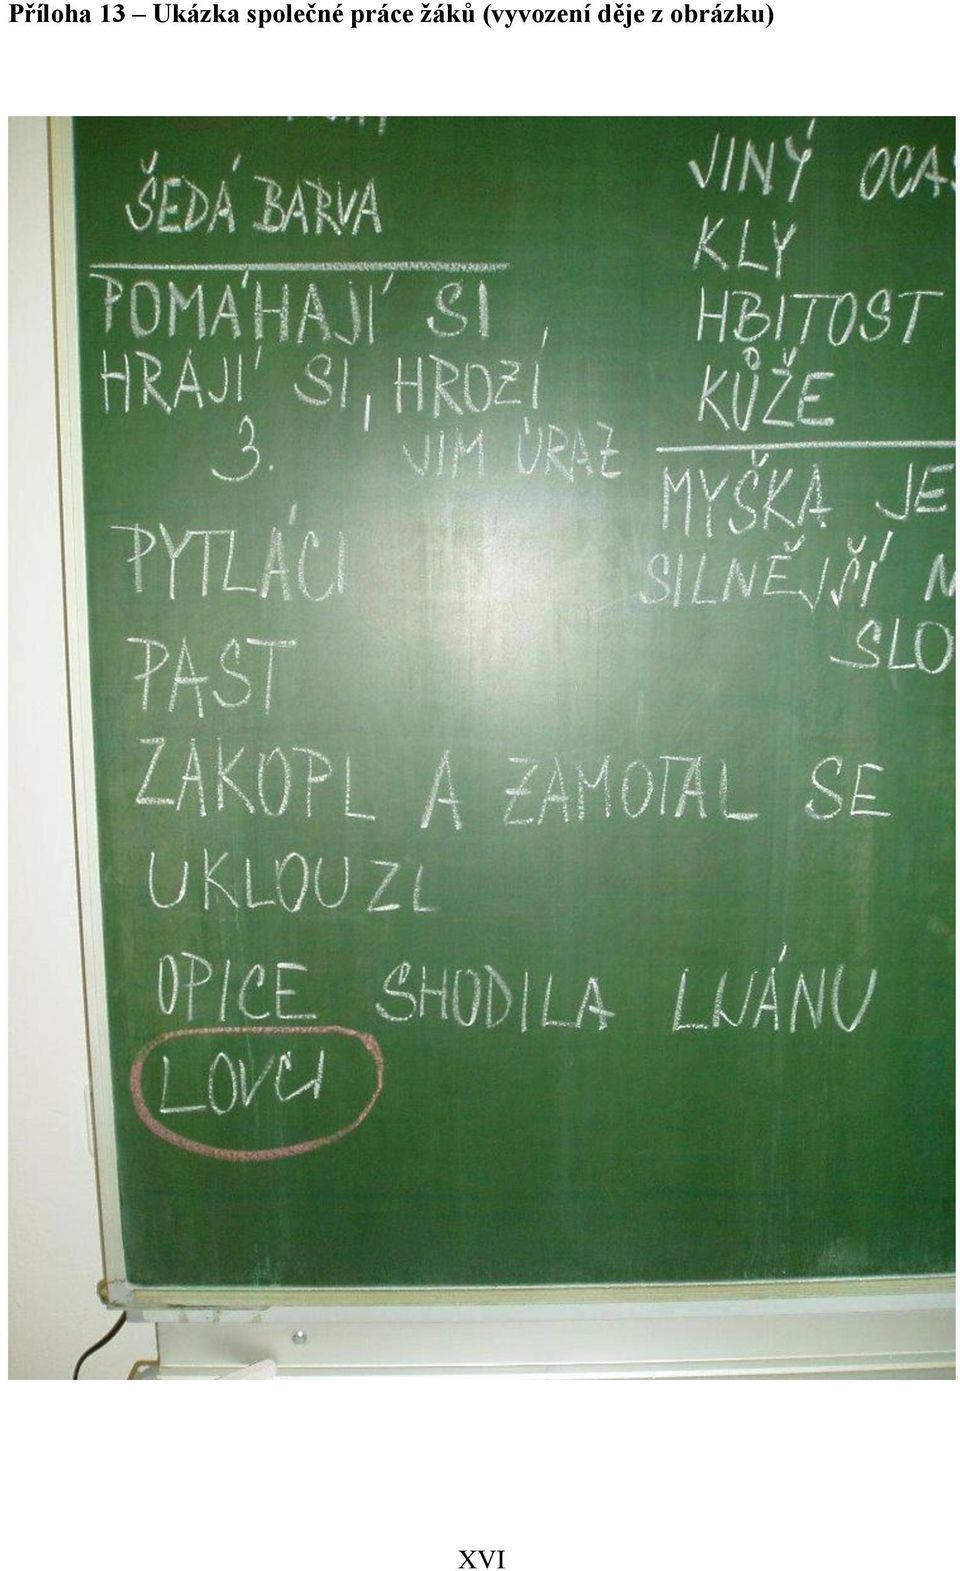 Příloha 13 – Ukázka společné práce žáků (vyvození děje z obrázku)
ŠEDÁ BARVA
POMÁHAJÍ SI
HRAJÍ SI, HROZÍ
3. JIM ÚRAZ
PYTLÁCI
PAST
JINÝ
KLY
HBITOST
KŮŽE
MYŠKA JE
SILNĚJŠÍ N
SLO
ZAKOPL A ZAMOTAL SE
UKLOUZL
OPICE SHODILA LIJÁNU
LOVCI
XVI